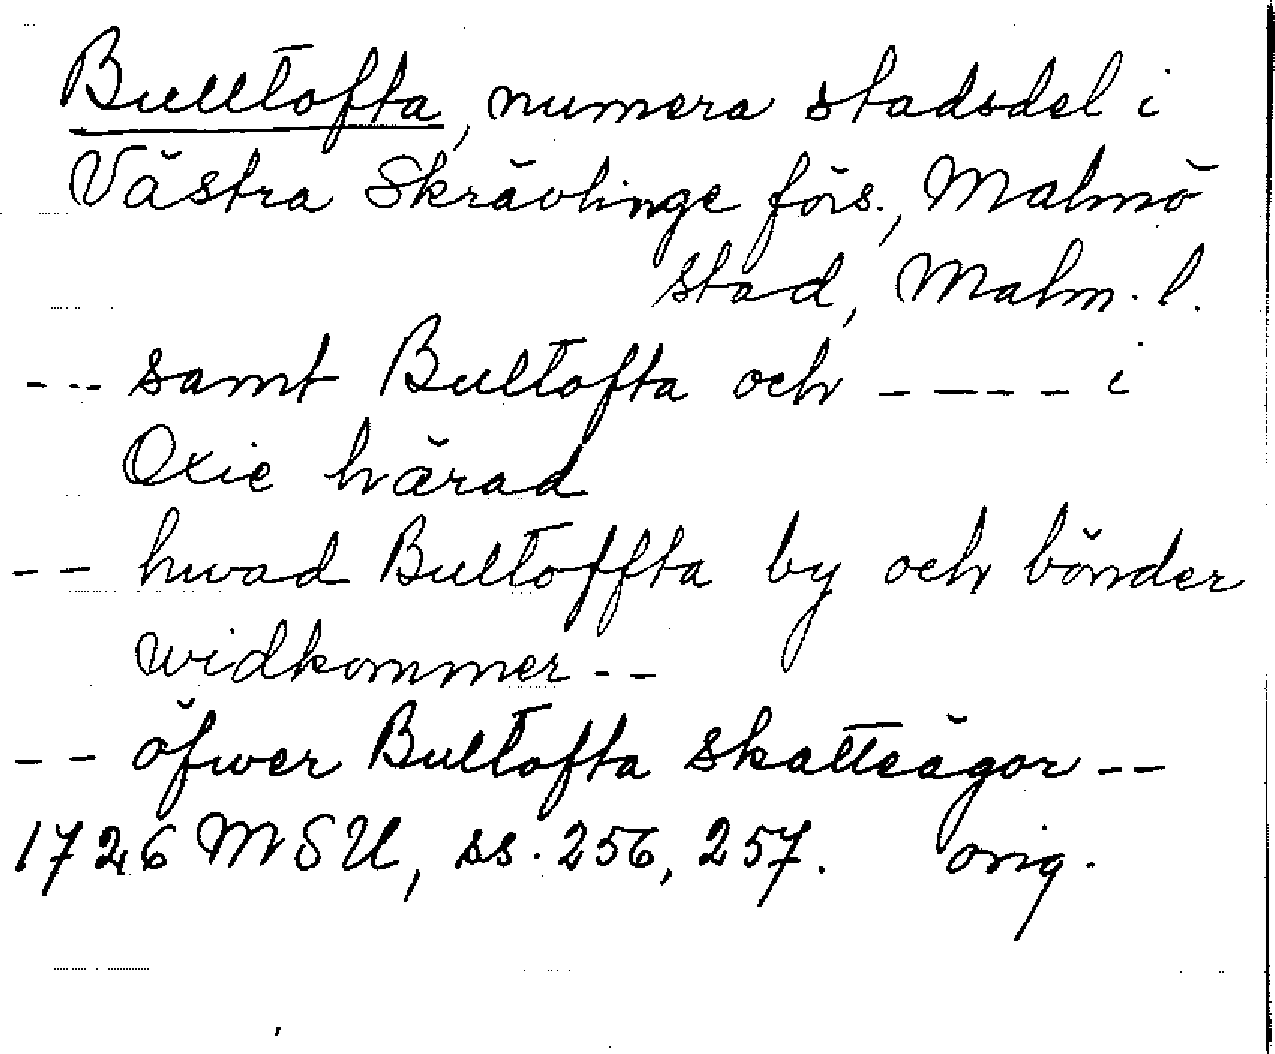 Bulltofta, numera stadsdel i
Västra Skrävlinge förs., Malmö
stad, Malm. l.
--- samt Bultofta och ---- i
Oxie härad
-- hwad Bultoffta by och bönder
widkommer --
-- öfwer Bultofta skatteägor --
1726 MSU, ss. 256, 257. orig.